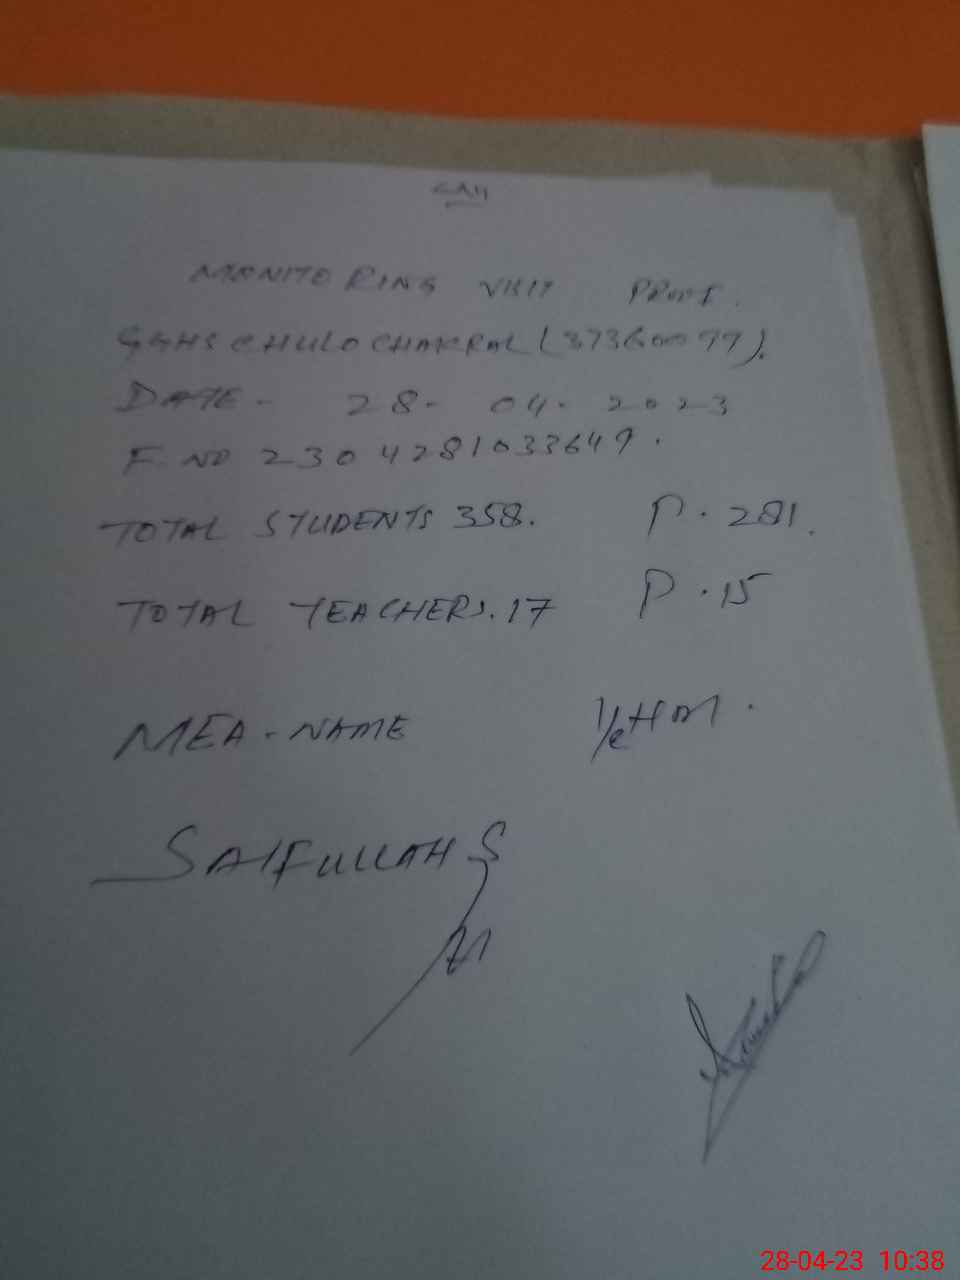 MONITORING VISIT PROOF.
GGHS CHULO CHAKRAL (37360099).
DATE - 28 - 04 - 2023
F. NO 2304281033649.
TOTAL STUDENTS 358. P. 281.
TOTAL TEACHERS. 17 P. 15
MEA - NAME I/C HM.
SAIFULLAH S
28-04-23 10:38